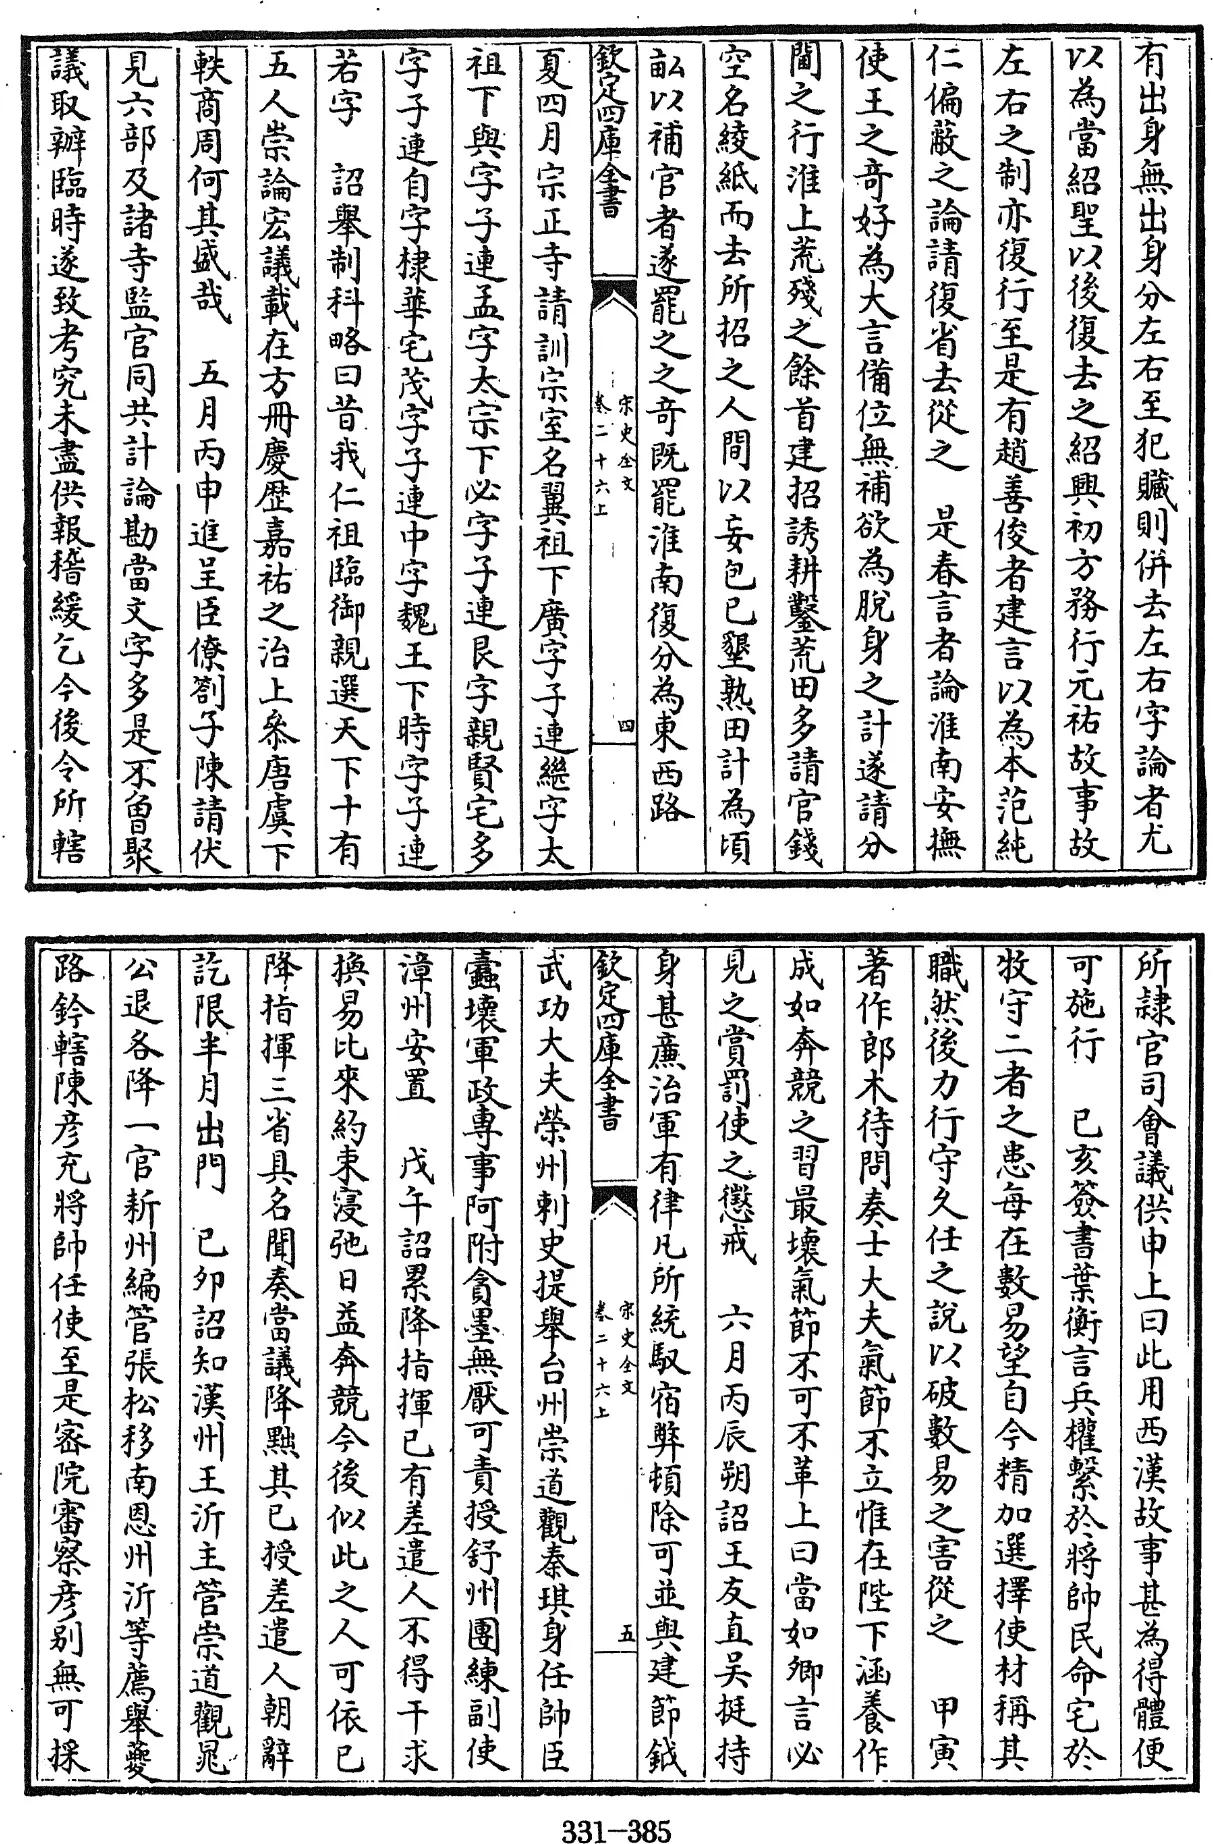 有出身無出身分左右至犯贓則併去左右字論者尤
以為當紹聖以後復去之紹興初方務行元祐故事故
左右之制亦復行至是有趙善俊者建言以為本范純
仁偏蔽之論請復省去從之　是春言者論淮南安撫
使王之奇好為大言備位無補欲為脫身之計遂請分
閫之行淮上荒殘之餘首建招誘耕鑿荒田多請官錢
空名綾紙而去所招之人間以妄包已墾熟田計為頃
畝以補官者遂罷之之奇既罷淮南復分為東西路
欽定四庫全書
宋史全文
卷二十六上
四
夏四月宗正寺請訓宗室名翼祖下廣字子連繼字太
祖下與字子連孟字太宗下必字子連艮字親賢宅多
字子連自字棣華宅茂字子連中字魏王下時字子連
若字　詔舉制科略曰昔我仁祖臨御親選天下十有
五人崇論宏議載在方冊慶歴嘉祐之治上參唐虞下
軼商周何其盛哉　五月丙申進呈臣僚劄子陳請伏
見六部及諸寺監官同共計論勘當文字多是不曾聚
議取辦臨時遂致考究未盡供報稽緩乞今後令所轄
所隸官司會議供申上曰此用西漢故事甚為得體便
可施行　已亥簽書葉衡言兵權繫於將帥民命宅於
牧守二者之患每在數易望自今精加選擇使材稱其
職然後力行守久任之說以破數易之害從之　甲寅
著作郎木待問奏士大夫氣節不立惟在陛下涵養作
成如奔競之習最壞氣節不可不革上曰當如卿言必
見之賞罰使之懲戒　六月丙辰朔詔王友直吳挺持
身甚廉治軍有律凡所統馭宿弊頓除可並與建節鉞
欽定四庫全書
宋史全文
卷二十六上
五
武功大夫榮州刺史提舉台州崇道觀秦琪身任帥臣
蠹壞軍政專事阿附貪墨無厭可責授舒州團練副使
漳州安置　戊午詔累降指揮已有差遣人不得干求
換易比來約束寖弛日益奔競今後似此之人可依已
降指揮三省具名聞奏當議降黜其已授差遣人朝辭
訖限半月出門　己卯詔知漢州王沂主管崇道觀晁
公退各降一官新州編管張松移南恩州沂等薦舉夔
路鈐轄陳彦充將帥任使至是密院審察彦别無可採
331-385